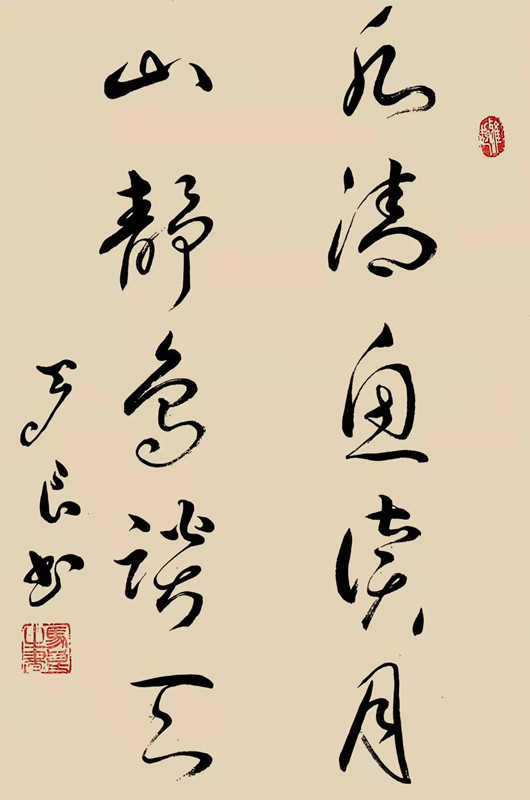 水清鱼读月
山静鸟谈天
良书